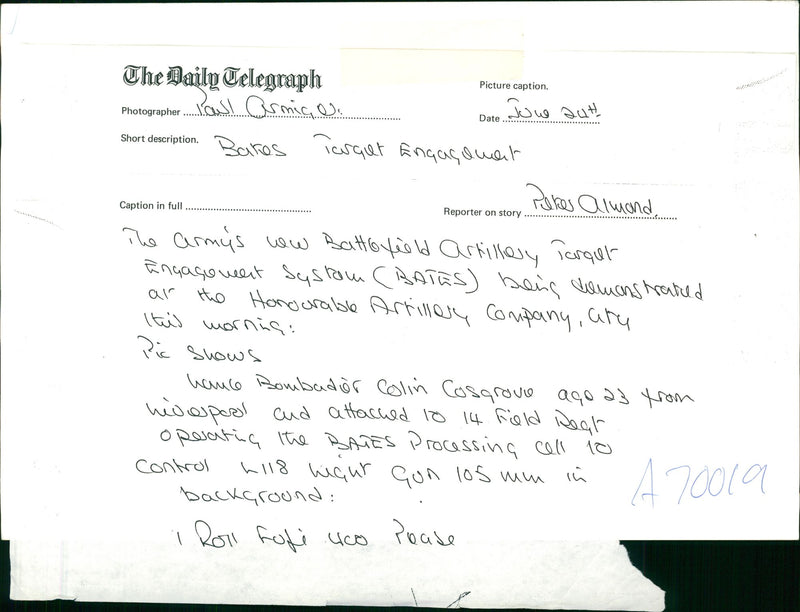 The Daily Telegraph
Picture caption.
Photographer Paul Armiger.
Date June 24th
Short description. Bates Target Engagement
Caption in full
Reporter on story Peter Almond.
The Army's new Battlefield Artillery Target
Engagement System (BATES) being demonstrated
at the Honourable Artillery Company, City
this morning:
Pic shows
Lance Bombadier Colin Cosgrove age 23 from
Liverpool and attached to 14 Field Regt
operating the BATES Processing cell to
control L118 Light Gun 105 mm in
background:
1 Roll Fuji 400 Please
A70019